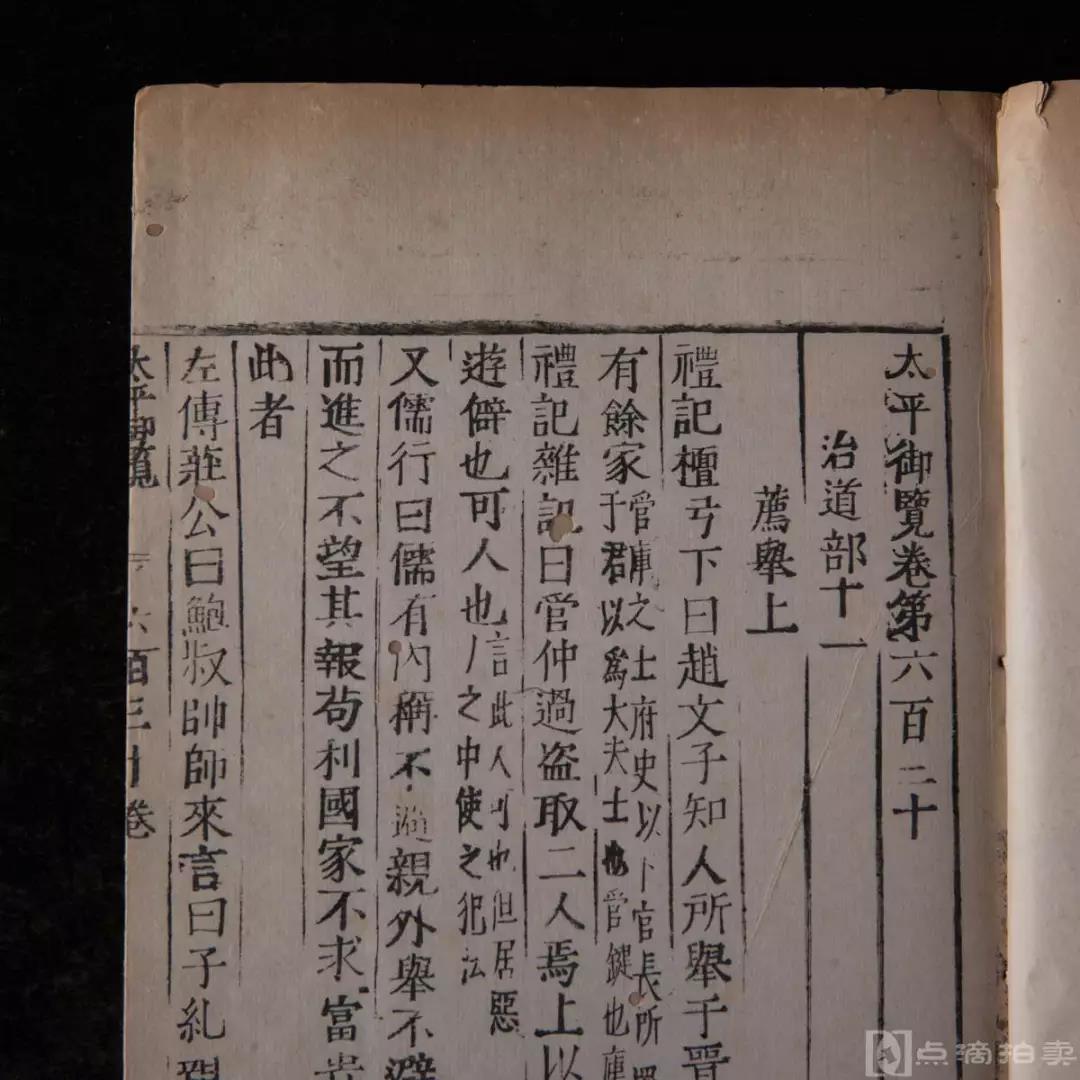 太平御覽卷第六百二十
治道部十一
薦舉上
禮記檀弓下曰趙文子知人所舉于晉
有餘家
管庫之士府史以下官長所
于君以爲大夫士也管鍵也庫
禮記雜記曰管仲過盗取二人焉上以
遊僻也可人也
言此人可也但居惡
人之中使之犯法
又儒行曰儒有內稱不避親外舉不避
而進之不望其報苟利國家不求富貴
此者
左傳莊公曰鮑叔帥師來言曰子糾親
太平御覽 六百卷
点滴拍卖